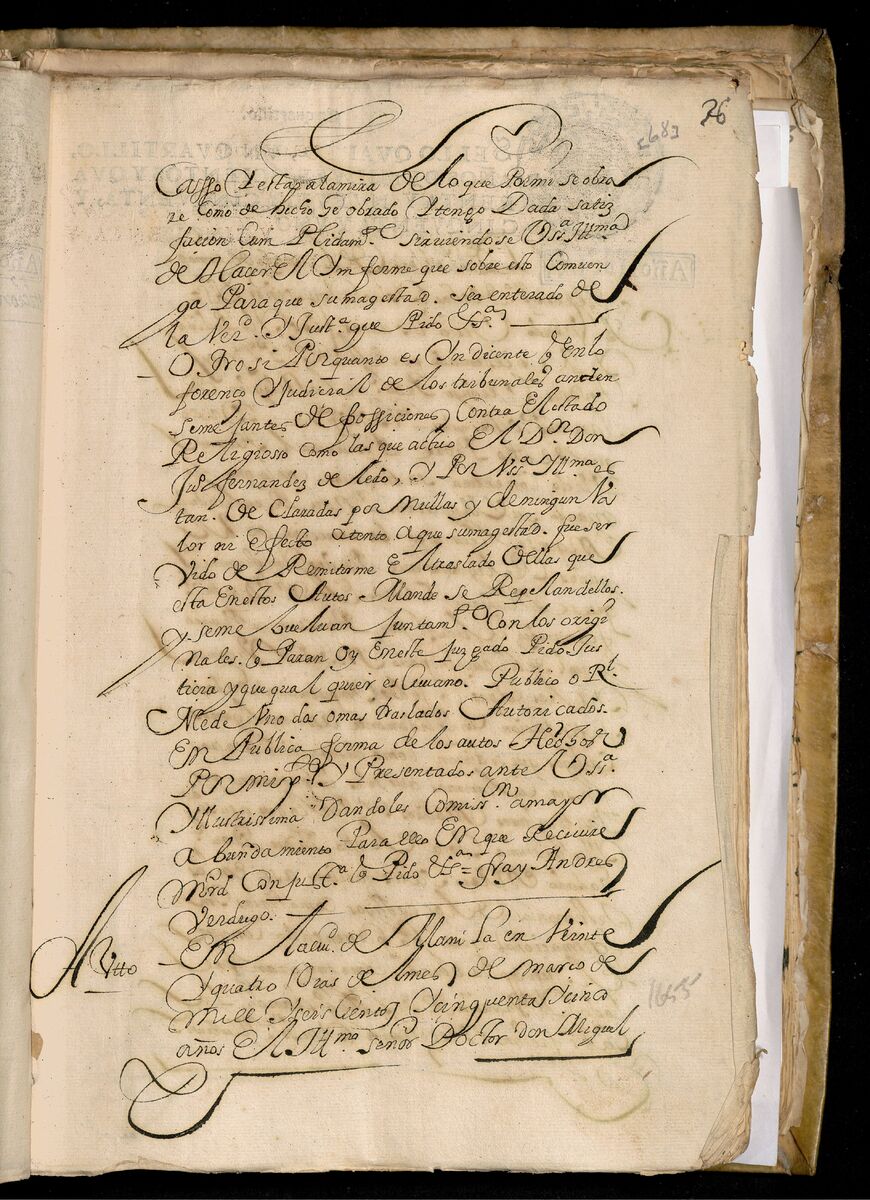 76
[681]
Casso Y estar a la mira de lo que Por mi se obra
re como de hecho he obrado Y tengo Dada satiz
facion Cum Plidamte sirviendose Vssa Illma
de Hacer El Ymforme que sobre esto Comuen
ga Para que su magestad. sea enterado de
la Verd. Y Justa que Pido &sa
O. Trosi Por quanto es Yndicente q En lo
forenço Y Judicial de los tribunales anden
semejantes de Possiciones Contra El estado
Religiosso Como las que actuo El Dn Don
Jun fernandez de Ledo, Y Por Vssa Illma es
tan. de Claradas por Nullas y de ningun Va
lor ni Efecto atento a que su magestad. fue ser
vido de Remitirme El traslado dellas que
esta En estos Autos Mande se
Y se me buelvan juntamte Con los origi
nales. q Paran oy En este juzgado Pido Jus
ticia y que qual quier escriuano. Publico o Rl
Me de Vno dos o mas traslados Autoricados.
En Publica forma de los autos Hechos
Por mi Y Presentados ante Vssa
Yllustrissima Dandoles Comissn a mayor
a bundamiento Para ello En que Recivire
Mrd Con justa q Pido &sa = fray Andres
Verdugo.
Autto
En la ciud. de Manila en Veinte
Y quatro Dias del mes de marco de
Mill Y seis Cientos Y cinquenta Y cinco
años El Illmo señor Doctor don Miguel
1655